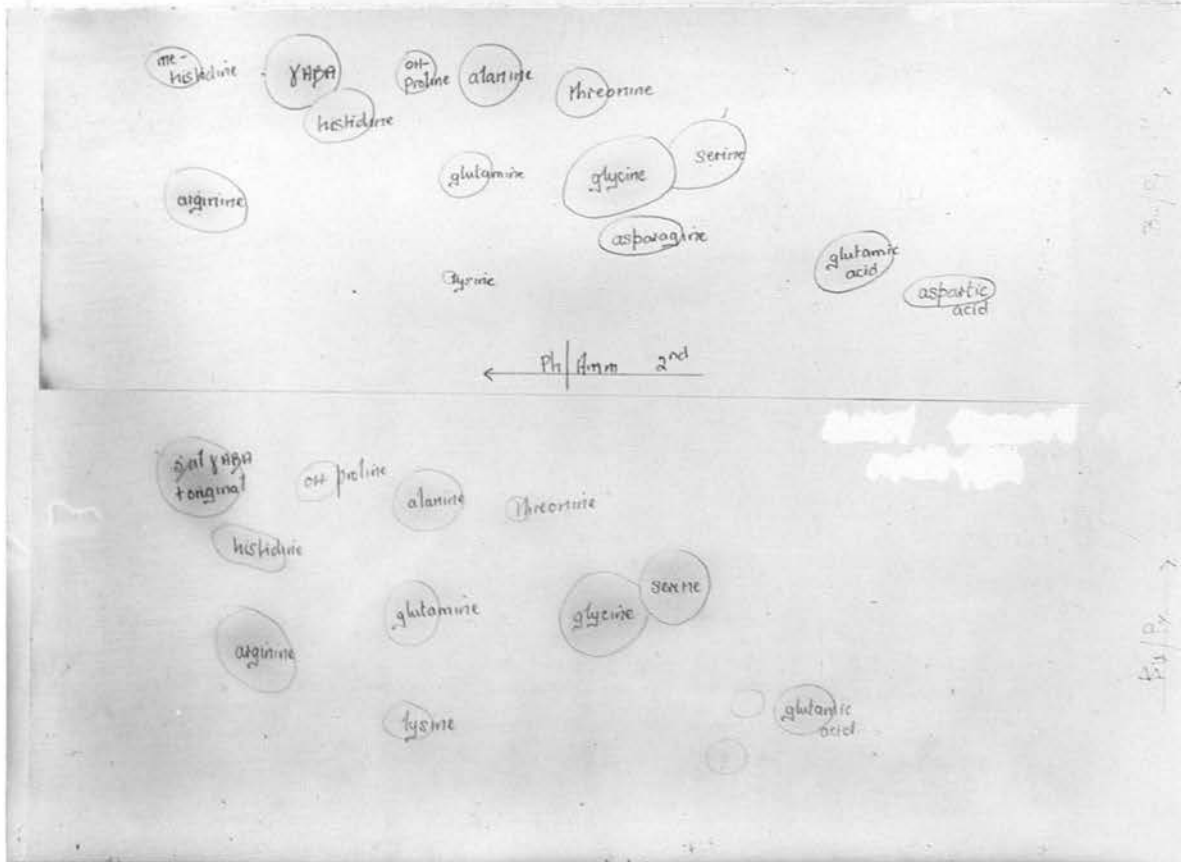 me-
histidine
γABA
OH-
Proline
alanine
threonine
histidine
serine
glutamine
glycine
arginine
asparagine
glutamic
acid
lysine
aspartic
acid
Ph/Amm 2nd
γABA
+original
OH proline
alanine
threonine
histidine
serine
glutamine
glycine
arginine
glutamic
acid
lysine